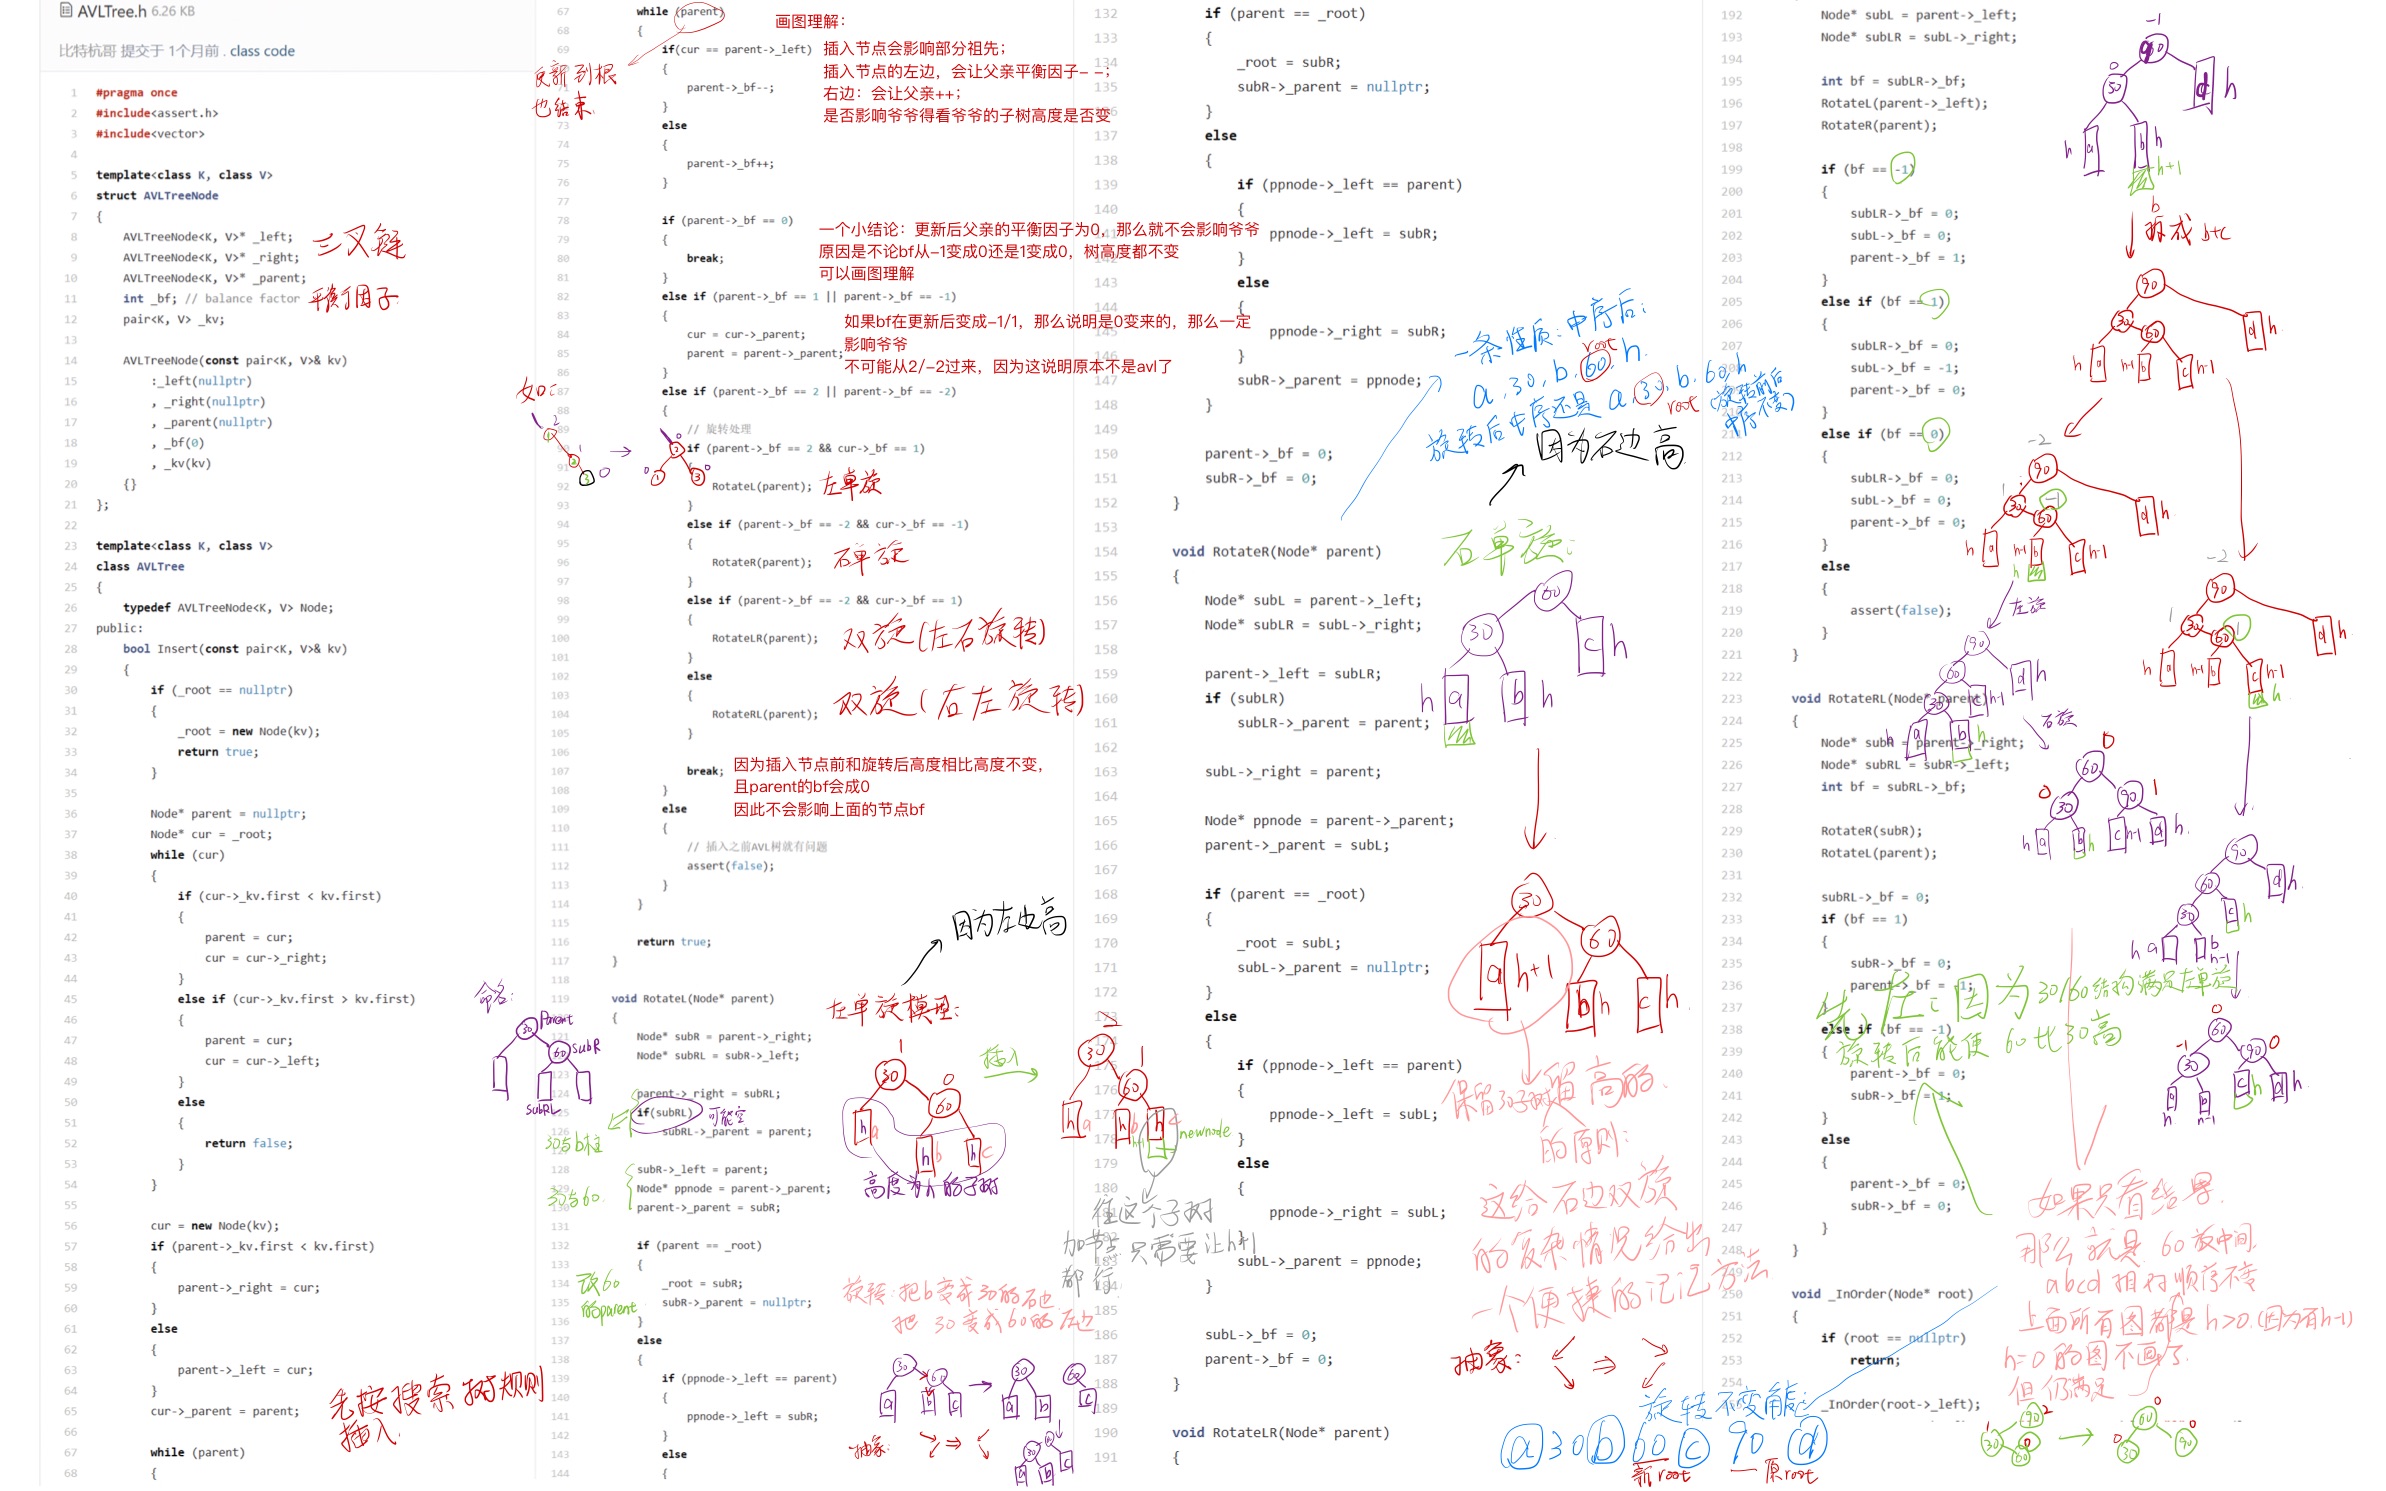 AVLTree.h 6.26 KB
比特杭哥 提交于 1个月前 . class code
1 #pragma once
2 #include<assert.h>
3 #include<vector>
4
5 template<class K, class V>
6 struct AVLTreeNode
7 {
8 AVLTreeNode<K, V>* _left;
9 AVLTreeNode<K, V>* _right;
三叉链
10 AVLTreeNode<K, V>* _parent;
11 int _bf; // balance factor
平衡因子
12 pair<K, V> _kv;
13
14 AVLTreeNode(const pair<K, V>& kv)
15 :_left(nullptr)
16 , _right(nullptr)
17 , _parent(nullptr)
18 , _bf(0)
19 , _kv(kv)
20 {}
21 };
22
23 template<class K, class V>
24 class AVLTree
25 {
26 typedef AVLTreeNode<K, V> Node;
27 public:
28 bool Insert(const pair<K, V>& kv)
29 {
30 if (_root == nullptr)
31 {
32 _root = new Node(kv);
33 return true;
34 }
35
36 Node* parent = nullptr;
37 Node* cur = _root;
38 while (cur)
39 {
40 if (cur->_kv.first < kv.first)
41 {
42 parent = cur;
43 cur = cur->_right;
44 }
45 else if (cur->_kv.first > kv.first)
46 {
47 parent = cur;
48 cur = cur->_left;
49 }
50 else
51 {
52 return false;
53 }
54 }
55
56 cur = new Node(kv);
57 if (parent->_kv.first < kv.first)
58 {
59 parent->_right = cur;
60 }
61 else
62 {
63 parent->_left = cur;
64 }
65 cur->_parent = parent;
66
67 while (parent)
68 {
先按搜索树规则
插入.
67 while (parent)
68 {
69 if(cur == parent->_left)
{
parent->_bf--;
}
73 else
74 {
75 parent->_bf++;
76 }
77
78 if (parent->_bf == 0)
79 {
80 break;
81 }
82 else if (parent->_bf == 1 || parent->_bf == -1)
83 {
84 cur = cur->_parent;
85 parent = parent->_parent;
86 }
87 else if (parent->_bf == 2 || parent->_bf == -2)
88 {
// 旋转处理
if (parent->_bf == 2 && cur->_bf == 1)
92 RotateL(parent);
左单旋
93 }
94 else if (parent->_bf == -2 && cur->_bf == -1)
95 {
96 RotateR(parent);
右单旋
97 }
98 else if (parent->_bf == -2 && cur->_bf == 1)
99 {
100 RotateLR(parent);
双旋(左右旋转)
101 }
102 else
103 {
104 RotateRL(parent);
双旋(右左旋转)
105 }
106
107 break;
108 }
109 else
110 {
111 // 插入之前AVL树就有问题
112 assert(false);
113 }
114 }
115
116 return true;
117 }
118
119 void RotateL(Node* parent)
{
121 Node* subR = parent->_right;
Node* subRL = subR->_left;
123
124 parent->_right = subRL;
if(subRL)
可能空
126 subRL->_parent = parent;
128 subR->_left = parent;
Node* ppnode = parent->_parent;
130 parent->_parent = subR;
131
132 if (parent == _root)
133 {
134 _root = subR;
135 subR->_parent = nullptr;
136 }
137 else
138 {
139 if (ppnode->_left == parent)
140 {
141 ppnode->_left = subR;
142 }
143 else
144 {
更新到根
也结束.
画图理解：
插入节点会影响部分祖先；
插入节点的左边，会让父亲平衡因子- -；
右边：会让父亲++；
是否影响爷爷得看爷爷的子树高度是否变
一个小结论：更新后父亲的平衡因子为0，那么就不会影响爷爷
原因是不论bf从-1变成0还是1变成0，树高度都不变
可以画图理解
如果bf在更新后变成-1/1，那么说明是0变来的，那么一定
影响爷爷
不可能从2/-2过来，因为这说明原本不是avl了
如:
因为插入节点前和旋转后高度相比高度不变，
且parent的bf会成0
因此不会影响上面的节点bf
因为左边高
左单旋模型:
插入
命名:
30 Parent
60 subR
subRL
30与b柱
30与60.
改60
的parent
高度为h的子树
newnode
往这个子树
加节点 只需要让h+1
都行
旋转:把b变成30的右边
把 30变成60的左边
抽象:
132 if (parent == _root)
133 {
134 _root = subR;
135 subR->_parent = nullptr;
136 }
137 else
138 {
139 if (ppnode->_left == parent)
140 {
ppnode->_left = subR;
}
143 else
144 {
145 ppnode->_right = subR;
146 }
147 subR->_parent = ppnode;
148 }
149
150 parent->_bf = 0;
151 subR->_bf = 0;
152 }
153
154 void RotateR(Node* parent)
155 {
156 Node* subL = parent->_left;
157 Node* subLR = subL->_right;
158
159 parent->_left = subLR;
160 if (subLR)
161 subLR->_parent = parent;
162
163 subL->_right = parent;
164
165 Node* ppnode = parent->_parent;
166 parent->_parent = subL;
167
168 if (parent == _root)
169 {
170 _root = subL;
171 subL->_parent = nullptr;
172 }
173 else
174 {
175 if (ppnode->_left == parent)
176 {
177 ppnode->_left = subL;
178 }
179 else
180 {
ppnode->_right = subL;
}
183 subL->_parent = ppnode;
184 }
185
186 subL->_bf = 0;
187 parent->_bf = 0;
188 }
189
190 void RotateLR(Node* parent)
191 {
一条性质:中序后:
a,30,b,60,h.
root
旋转后中序还是 a,30,b,60,h
root
(旋转前后
中序不变)
因为右边高
右单旋:
保留30子树留高的
的原则:
这给右边双旋
的复杂情况给出
一个便捷的记忆方法
抽象:
旋转不变角:
a 30 b 60 c 90 d
新root
原root
192 Node* subL = parent->_left;
193 Node* subLR = subL->_right;
194
195 int bf = subLR->_bf;
196 RotateL(parent->_left);
197 RotateR(parent);
198
199 if (bf == -1)
200 {
201 subLR->_bf = 0;
202 subL->_bf = 0;
203 parent->_bf = 1;
204 }
205 else if (bf == 1)
206 {
207 subLR->_bf = 0;
208 subL->_bf = -1;
parent->_bf = 0;
}
else if (bf == 0)
212 {
213 subLR->_bf = 0;
214 subL->_bf = 0;
215 parent->_bf = 0;
216 }
217 else
218 {
219 assert(false);
220 }
221 }
222
223 void RotateRL(Node* parent)
224 {
225 Node* subR = parent->_right;
226 Node* subRL = subR->_left;
227 int bf = subRL->_bf;
228
229 RotateR(subR);
230 RotateL(parent);
231
232 subRL->_bf = 0;
233 if (bf == 1)
234 {
235 subR->_bf = 0;
236 parent->_bf = -1;
238 else if (bf == -1)
239 {
240 parent->_bf = 0;
241 subR->_bf = 1;
242 }
243 else
244 {
245 parent->_bf = 0;
246 subR->_bf = 0;
247 }
248 }
250 void _InOrder(Node* root)
251 {
252 if (root == nullptr)
253 return;
254
_InOrder(root->_left);
b
拆成 b+c
左旋
右旋
先左:因为30/60结构满足左单旋
旋转后能使 60比30高
如果只看结果.
那么就是 60放中间
abcd相对顺序不变
上面所有图都是h>0.(因为有h-1)
h=0的图不画了.
但仍满足